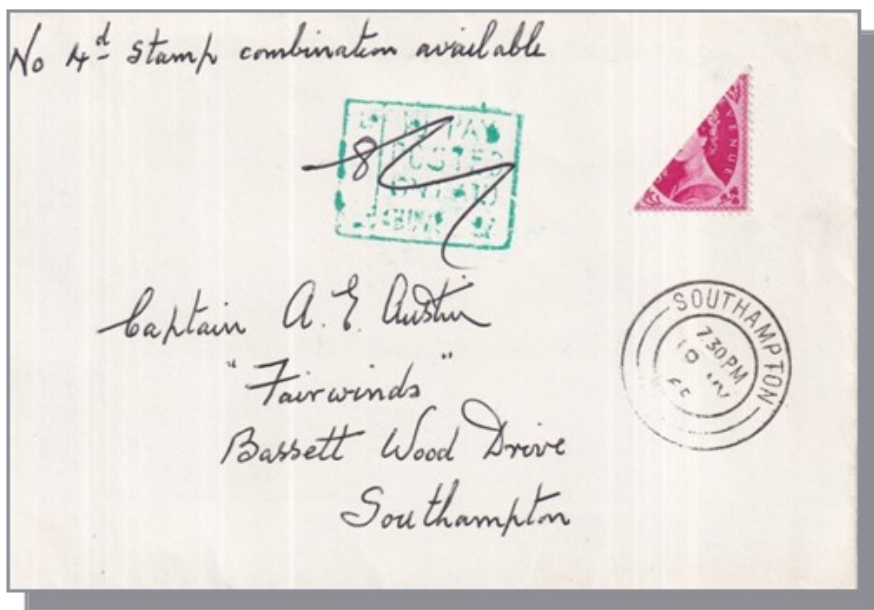 No 4d Stamp combination available
8
PAY
POSTED
REVENUE
Captain A. E. Austin
"Fairwinds"
Bassett Wood Drive
Southampton
SOUTHAMPTON
7.30PM